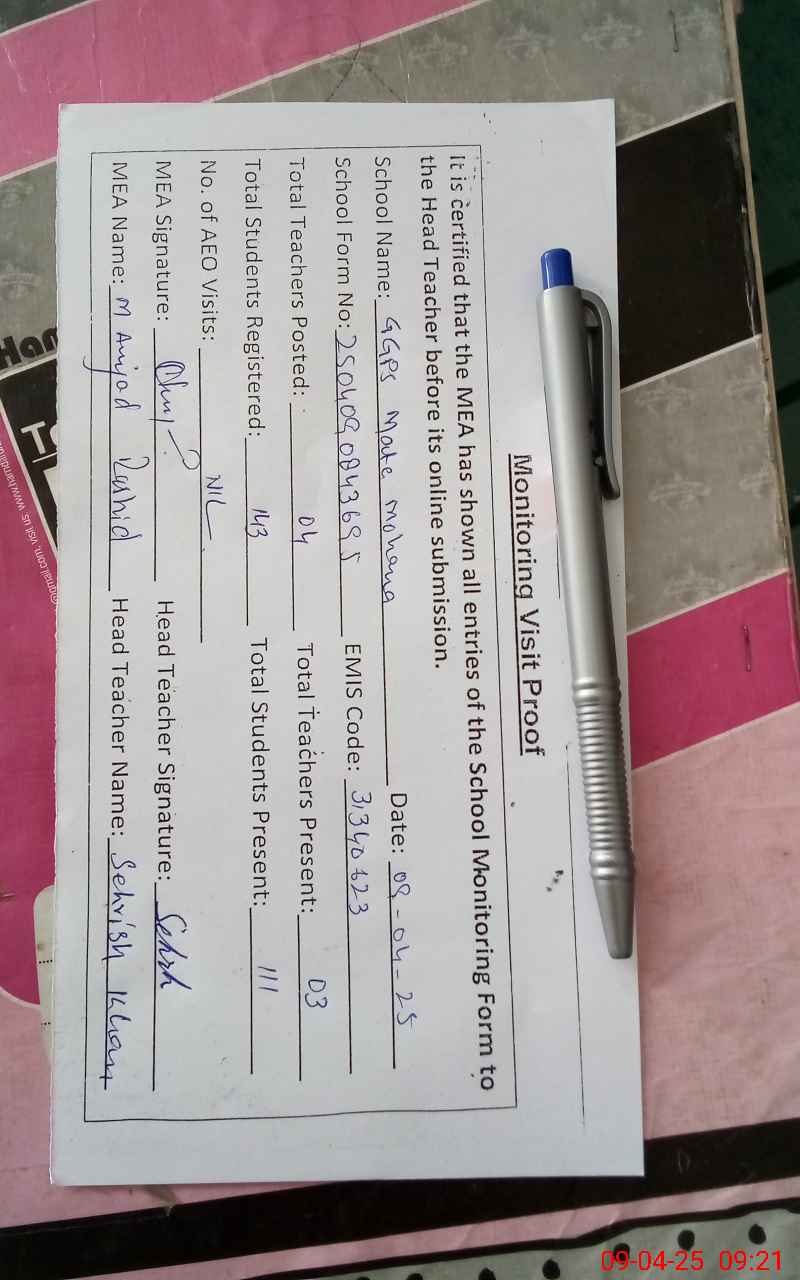 Monitoring Visit Proof
It is certified that the MEA has shown all entries of the School Monitoring Form to
the Head Teacher before its online submission.
School Name: GGPS Mate Mohana Date: 09-04-25
School Form No: 250409084369 5 EMIS Code: 31340123
Total Teachers Posted: 04 Total Teachers Present: 03
Total Students Registered: 143 Total Students Present: 111
No. of AEO Visits: NIL
MEA Signature: Head Teacher Signature: Sehrish
MEA Name: M Amjad Rashid Head Teacher Name: Sehrish Khan
Ham
@gmail.com, visit us: www.hamdard
09-04-25 09:21